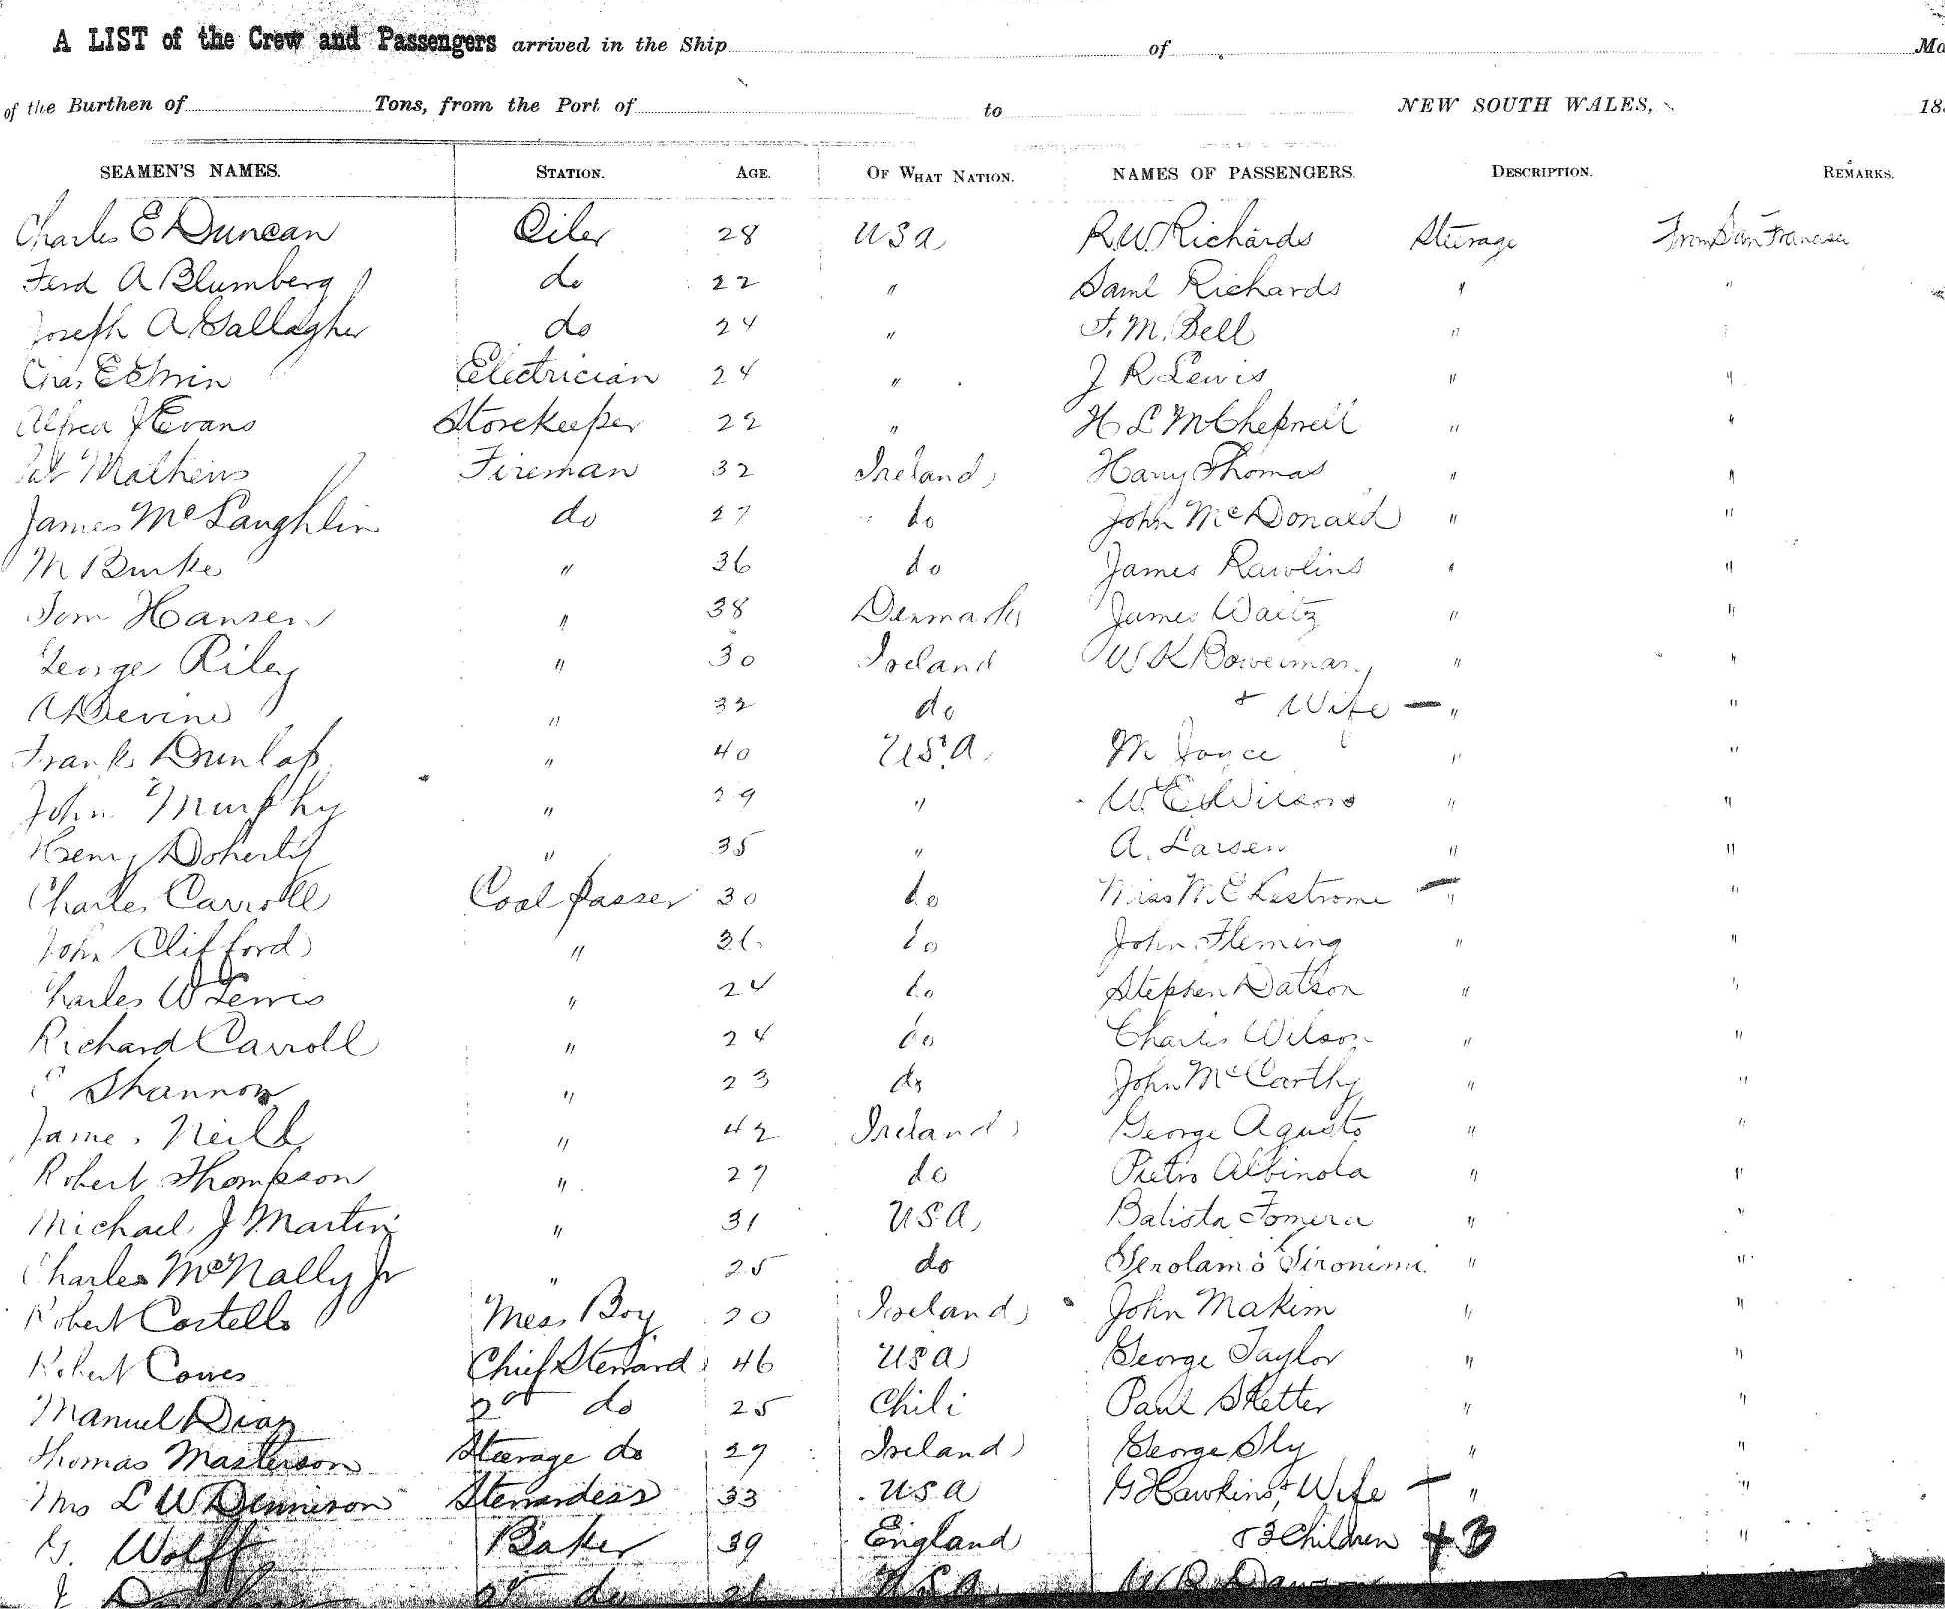 A LIST of the Crew and Passengers arrived in the Ship of
of the Burthen of Tons, from the Port of to NEW SOUTH WALES, 18
SEAMEN'S NAMES. STATION. AGE. OF WHAT NATION. NAMES OF PASSENGERS. DESCRIPTION. REMARKS.
Charles E Duncan Oiler 28 USA R.W. Richards Steerage From San Francisco
Ferd A Blumberg do 22 " Saml Richards " "
Joseph A Gallagher do 24 " F. M. Bell "
Chas E Electrician 24 " J R Lewis " "
Alfred J Evans Storekeeper 22 " H L " "
Mathews Fireman 32 Ireland Harry Thomas " "
James McLaughlin do 27 do John McDonald " "
M Burke " 36 do James Rawlins " "
Tom Hansen " 38 Denmark James Waitz " "
George Riley " 30 Ireland W K Bowerman " "
A Devine " 32 do + Wife — " "
Frank Dunlap " 40 U.S.A. M Joyce " "
John Murphy " 29 " W. E. Wilson " "
Henry Doherty " 35 " A. Larsen " "
Charles Carroll Coal passer 30 do Miss M. E Lestrome — " "
John Clifford " do John Fleming " "
Charles W Lewis " 24 do Stephen Datson " "
Richard Carroll " 24 do Charles Wilson " "
Shannon " 23 do John McCarthy " "
James Neill " 42 Ireland George Agusto " "
Robert Thompson " 27 do Pietro Albinola " "
Michael J Martin " 31 USA Batista Fomera " "
Charles McNally Jr " 25 do Gerolamo Gironimi " "
Robert Costello Mess Boy 20 Ireland John Makim " "
Robert Cowes Chief Steward 46 USA George Taylor " "
Manuel Diaz 2nd do 25 Chili Paul Sketter " "
Thomas Masterson Steerage do 27 Ireland George Sly " "
Mrs L W Dennison Stewardess 33 USA G Hawkins + Wife — " "
G. Wolff Baker 39 England + 3 Children + 3 "
J 2nd do USA W R Dawson